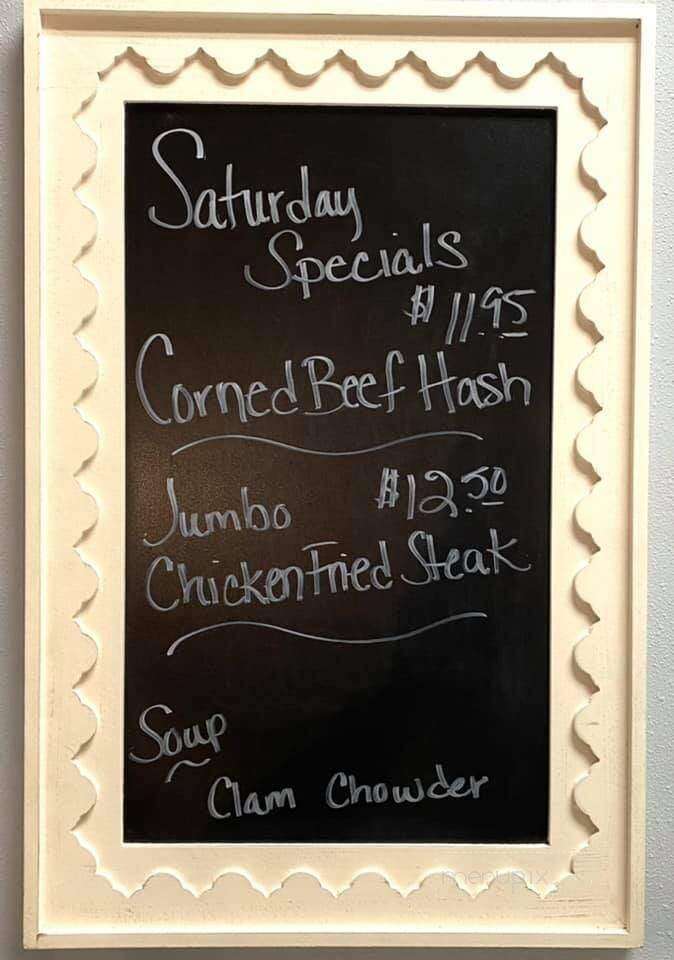 Saturday
Specials
$11.95
Corned Beef Hash
Jumbo $12.50
Chicken Fried Steak
Soup
~
Clam Chowder
menupix